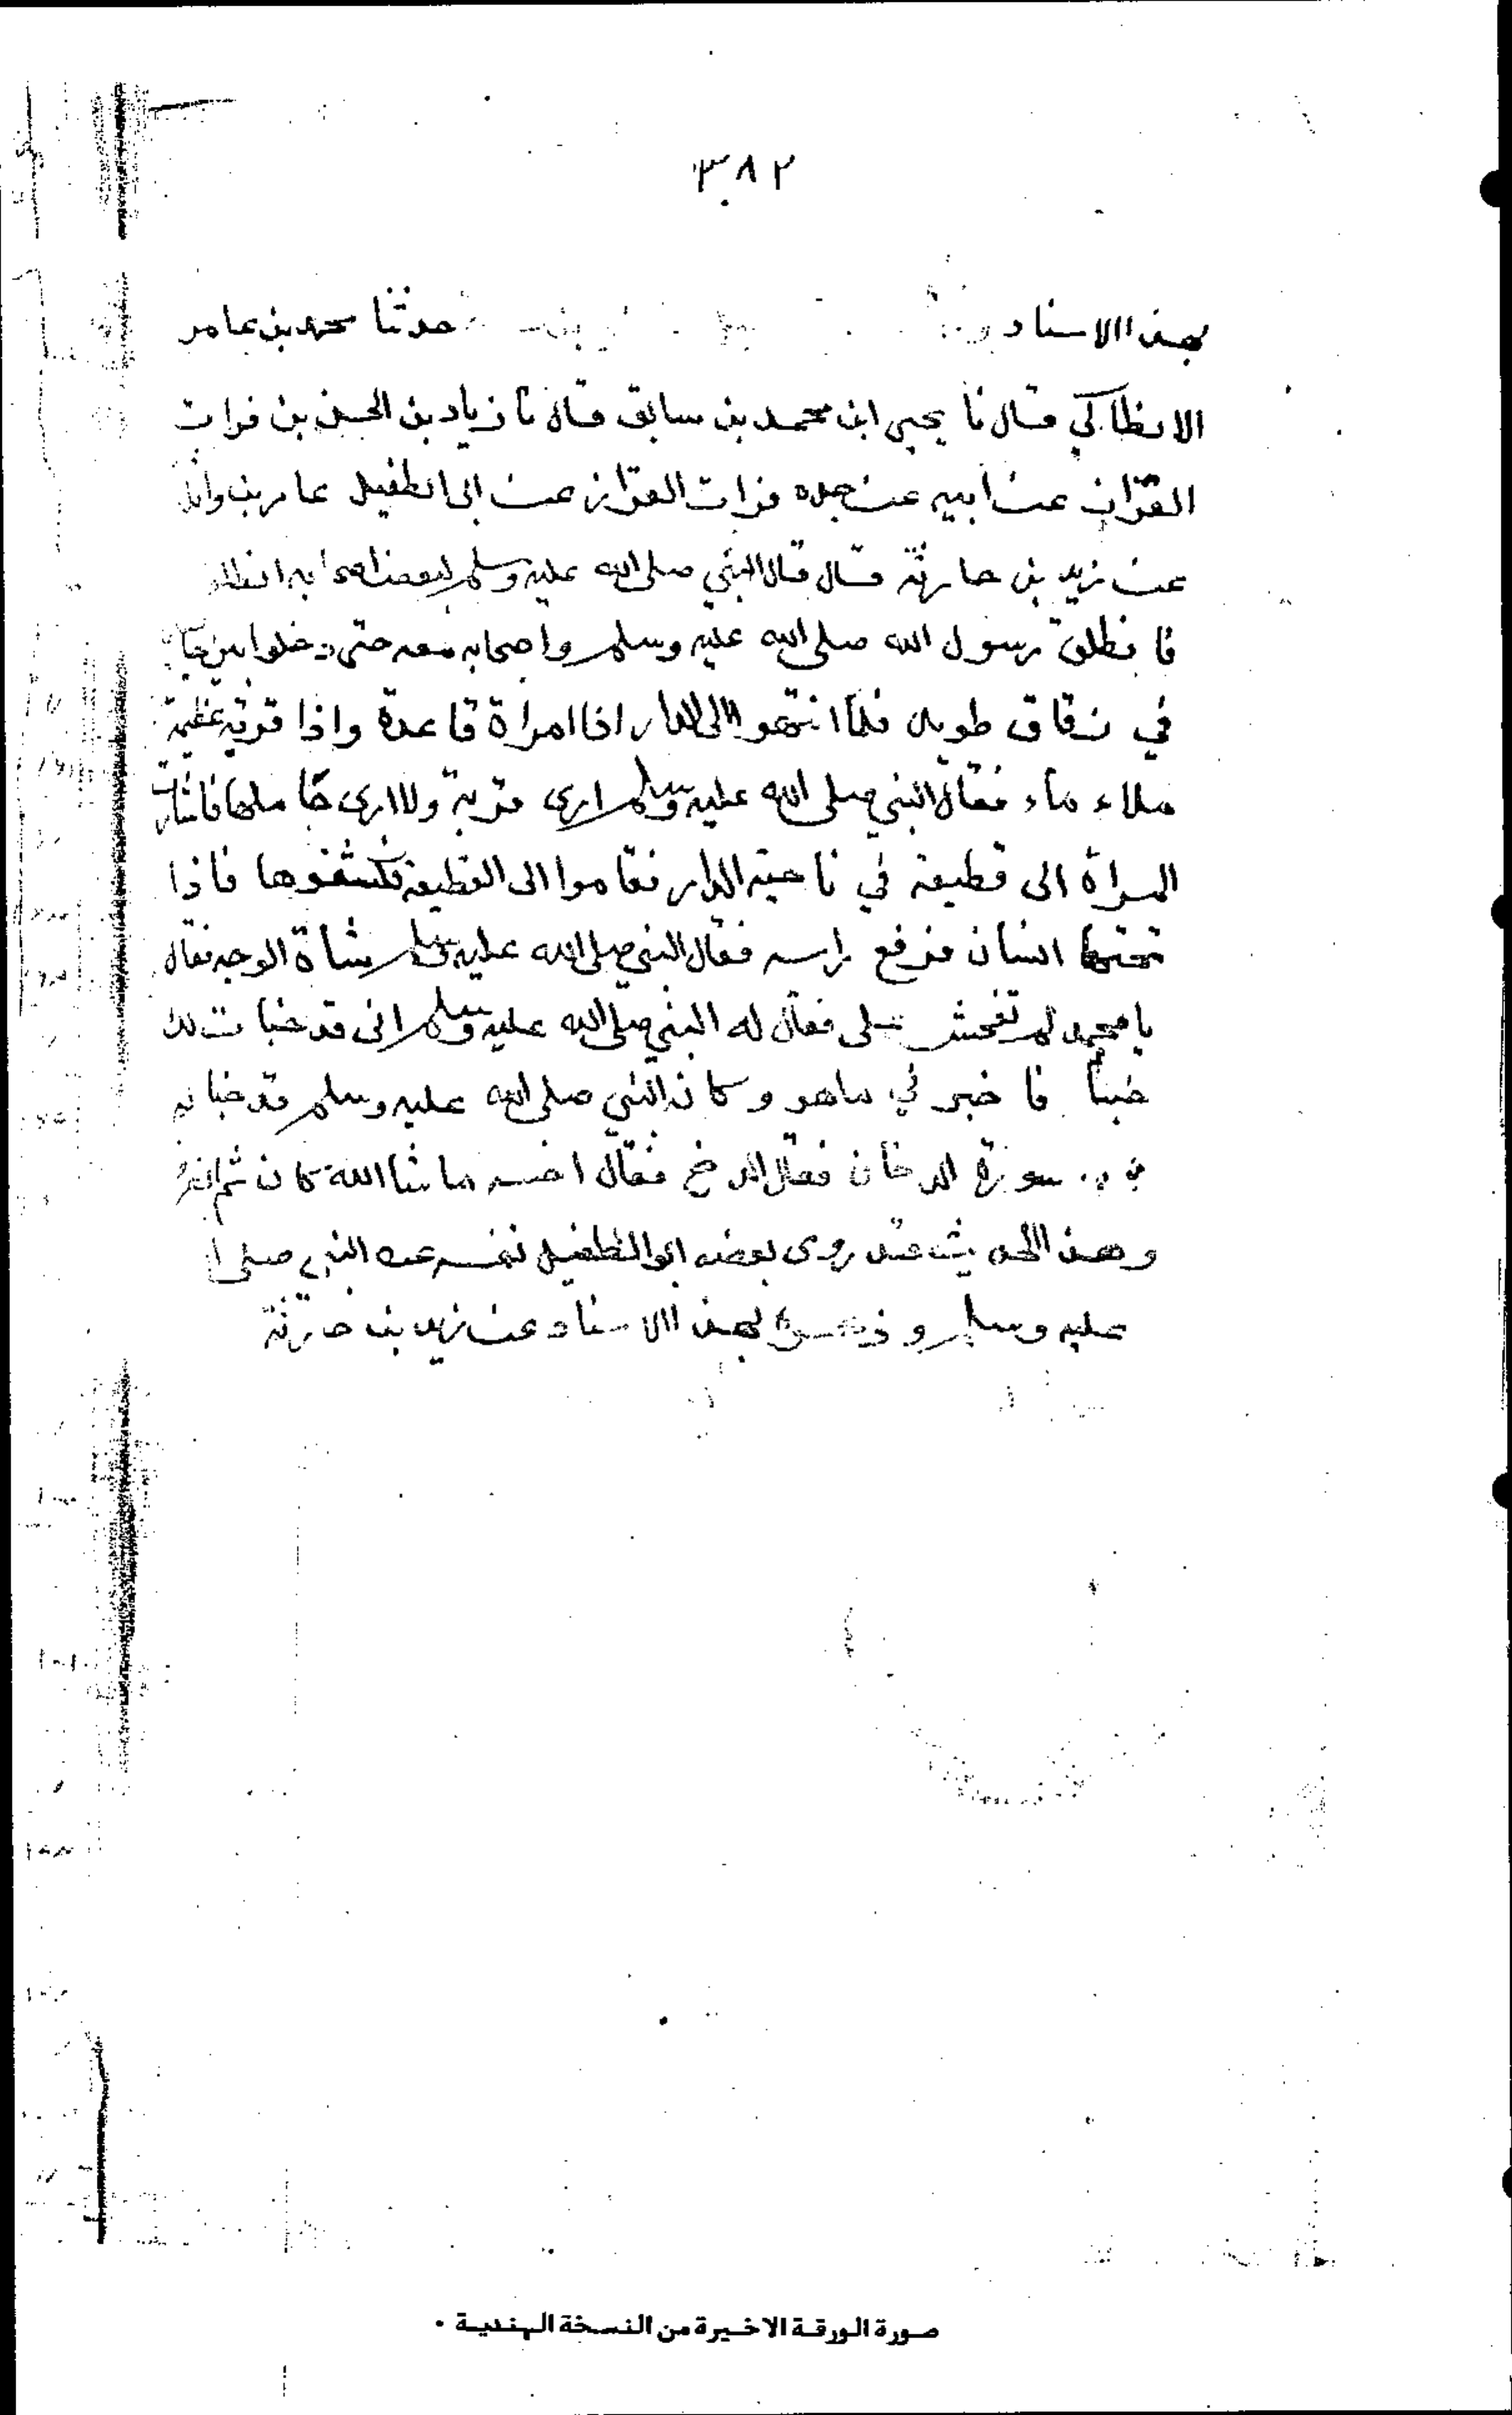 ٣٨٢
بهذا الاسناد حدثنا محمد بن عامر
الانطاكي قال نا يحيى ابن محمد بن سابق قال نا زياد بن الحسن بن فرات
القزاز عن ابيه عن جده فرات القزاز عن ابى الطفيل عامر بن واثلة
عن زيد بن حارثة قال قال النبي صلى الله عليه وسلم لبعض اصحابه انطلق
فانطلق رسول الله صلى الله عليه وسلم واصحابه معه حتى دخلوا بين
في زقاق طويل فلما انتهوا الى الدار اذا امراة قاعدة واذا قربة عظيمة
ملاء ماء فقال النبي صلى الله عليه وسلم ارى قربة ولا ارى حاملها فاشارت
المراة الى قطيفة في ناحية الدار فقاموا الى القطيفة فكشفوها فاذا
تحتها انسان فرفع راسه فقال النبي صلى الله عليه وسلم شاة الوجه فقال
يا محمد لم تفحش على فقال له النبي صلى الله عليه وسلم انى قد خبات لك
خبأ فاخبرني ما هو وكان النبي صلى الله عليه وسلم قد خبا له
سورة الدخان فقال الدخ فقال اخسه ما شا الله كان ثم انصرف
وهذا الحديث قد روى بعضه ابو الطفيل نفسه عن النبي صلى
عليه وسلم و بهذا الاسناد عن زيد بن حارثة
صورة الورقة الاخيرة من النسخة الهندية .